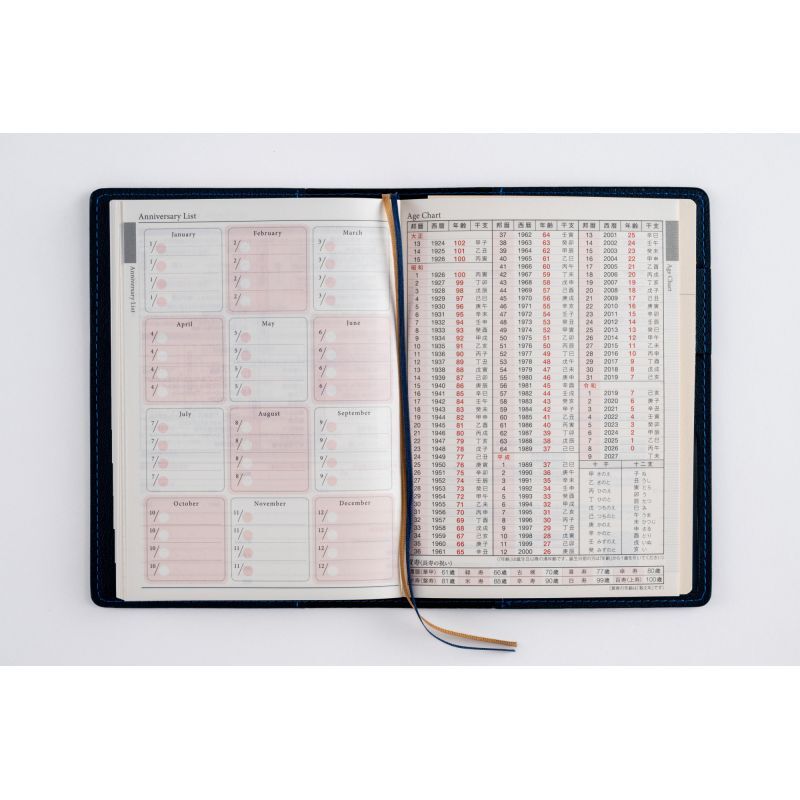 Anniversary List
January
1/
1/
1/
1/
February
2/
2/
2/
2/
March
3/
3/
3/
3/
April
4/
4/
4/
4/
May
5/
5/
5/
5/
June
6/
6/
6/
6/
July
7/
7/
7/
7/
August
8/
8/
8/
8/
September
9/
9/
9/
9/
October
10/
10/
10/
10/
November
11/
11/
11/
11/
December
12/
12/
12/
12/
Anniversary List
Age Chart
邦暦 西暦 年齢 干支
大正
13 1924 102 甲子
14 1925 101 乙丑
15 1926 100 丙寅
昭和
1 1926 100 丙寅
2 1927 99 丁卯
3 1928 98 戊辰
4 1929 97 己巳
5 1930 96 庚午
6 1931 95 辛未
7 1932 94 壬申
8 1933 93 癸酉
9 1934 92 甲戌
10 1935 91 乙亥
11 1936 90 丙子
12 1937 89 丁丑
13 1938 88 戊寅
14 1939 87 己卯
15 1940 86 庚辰
16 1941 85 辛巳
17 1942 84 壬午
18 1943 83 癸未
19 1944 82 甲申
20 1945 81 乙酉
21 1946 80 丙戌
22 1947 79 丁亥
23 1948 78 戊子
24 1949 77 己丑
25 1950 76 庚寅
26 1951 75 辛卯
27 1952 74 壬辰
28 1953 73 癸巳
29 1954 72 甲午
30 1955 71 乙未
31 1956 70 丙申
32 1957 69 丁酉
33 1958 68 戊戌
34 1959 67 己亥
35 1960 66 庚子
36 1961 65 辛丑
邦暦 西暦 年齢 干支
37 1962 64 壬寅
38 1963 63 癸卯
39 1964 62 甲辰
40 1965 61 乙巳
41 1966 60 丙午
42 1967 59 丁未
43 1968 58 戊申
44 1969 57 己酉
45 1970 56 庚戌
46 1971 55 辛亥
47 1972 54 壬子
48 1973 53 癸丑
49 1974 52 甲寅
50 1975 51 乙卯
51 1976 50 丙辰
52 1977 49 丁巳
53 1978 48 戊午
54 1979 47 己未
55 1980 46 庚申
56 1981 45 辛酉
57 1982 44 壬戌
58 1983 43 癸亥
59 1984 42 甲子
60 1985 41 乙丑
61 1986 40 丙寅
62 1987 39 丁卯
63 1988 38 戊辰
64 1989 37 己巳
平成
1 1989 37 己巳
2 1990 36 庚午
3 1991 35 辛未
4 1992 34 壬申
5 1993 33 癸酉
6 1994 32 甲戌
7 1995 31 乙亥
8 1996 30 丙子
9 1997 29 丁丑
10 1998 28 戊寅
11 1999 27 己卯
12 2000 26 庚辰
邦暦 西暦 年齢 干支
13 2001 25 辛巳
14 2002 24 壬午
15 2003 23 癸未
16 2004 22 甲申
17 2005 21 乙酉
18 2006 20 丙戌
19 2007 19 丁亥
20 2008 18 戊子
21 2009 17 己丑
22 2010 16 庚寅
23 2011 15 辛卯
24 2012 14 壬辰
25 2013 13 癸巳
26 2014 12 甲午
27 2015 11 乙未
28 2016 10 丙申
29 2017 9 丁酉
30 2018 8 戊戌
31 2019 7 己亥
令和
1 2019 7 己亥
2 2020 6 庚子
3 2021 5 辛丑
4 2022 4 壬寅
5 2023 3 癸卯
6 2024 2 甲辰
7 2025 1 乙巳
8 2026 0 丙午
9 2027 丁未
十干
甲 きのえ
乙 きのと
丙 ひのえ
丁 ひのと
戊 つちのえ
己 つちのと
庚 かのえ
辛 かのと
壬 みずのえ
癸 みずのと
十二支
子 ね
丑 うし
寅 とら
卯 う
辰 たつ
巳 み
午 うま
未 ひつじ
申 さる
酉 とり
戌 いぬ
亥 い
賀寿(長寿の祝い)
還暦(華甲) 61歳 緑寿 66歳 古稀 70歳 喜寿 77歳 傘寿 80歳
半寿(盤寿) 81歳 米寿 88歳 卒寿 90歳 白寿 99歳 百寿(上寿) 100歳
Age Chart